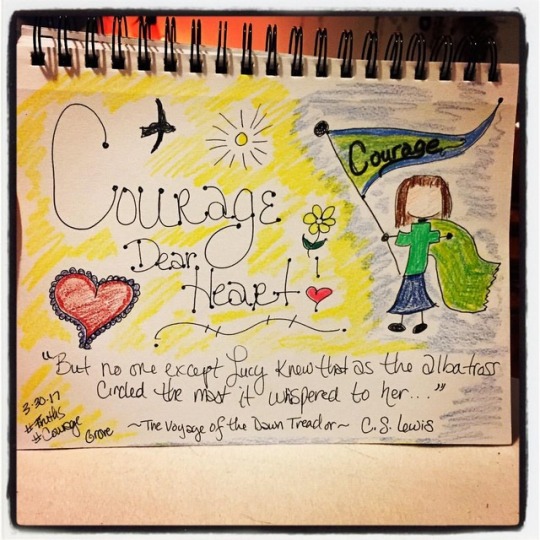 Courage
Courage
Dear
Heart!
"But no one except Lucy knew that as the albatross
Circled the mast it whispered to her..."
~The Voyage of the Dawn Treador~ C.S. Lewis
3-30-17
#Courage